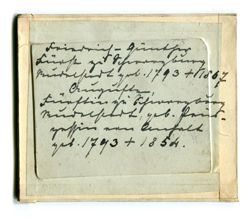 Friedrich-Günther
Fürst zu Schwarzburg
Rudolstadt geb. 1793 + 1867
Auguste,
Fürstin zu Schwarzburg
Rudolstadt, geb. Prin-
zessin von Anhalt
geb. 1793 + 1854.